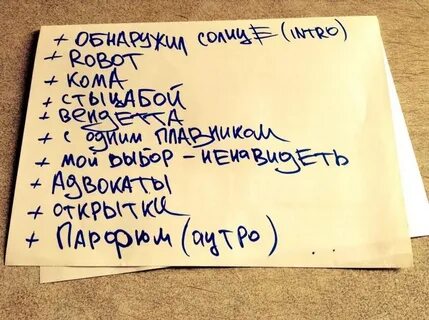 + ОБНАРУЖИЛ СОЛНЦЕ (INTRO)
+ ROBOT
+ КОМА
+ СТЫЦАБОЙ
+ ВЕНДЕТТА
+ С ОДНИМ ПЛАВНИКОМ
+ МОЙ ВЫБОР - НЕНАВИДЕТЬ
+ АДВОКАТЫ
+ ОТКРЫТКИ
+ ПАРФЮМ (АУТРО)